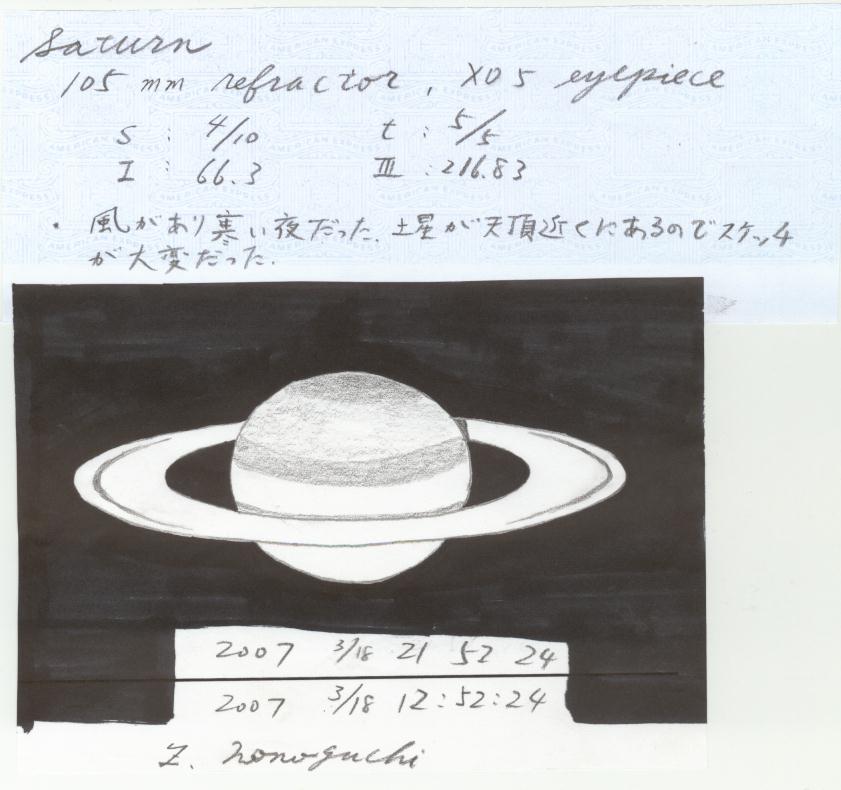 Saturn
105 mm refractor, XO5 eyepiece
S : 4/10 t : 5/5
I : 66.3 III : 216.83
・風があり寒い夜だった。土星が天頂近くにあるのでスケッチ
が大変だった。
2007 3/18 21 52 24
2007 3/18 12:52:24
Z. nonoguchi